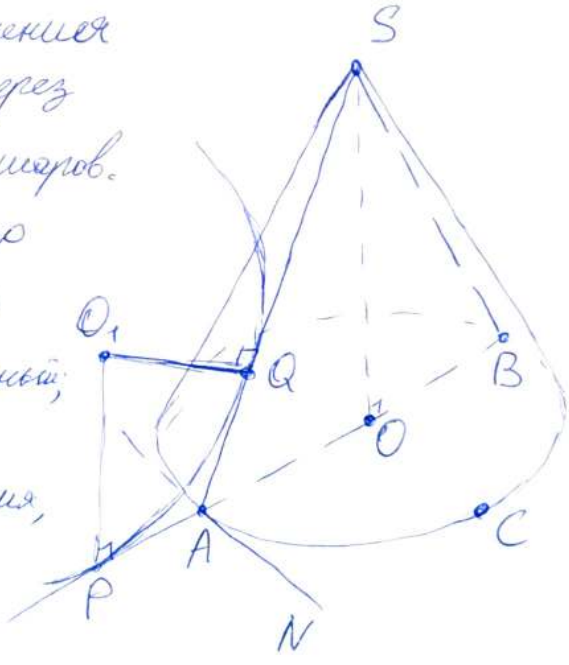 ения
ерез
шаров.
о
ный;
ия,
S
O₁
Q
B
O
A
C
P
N